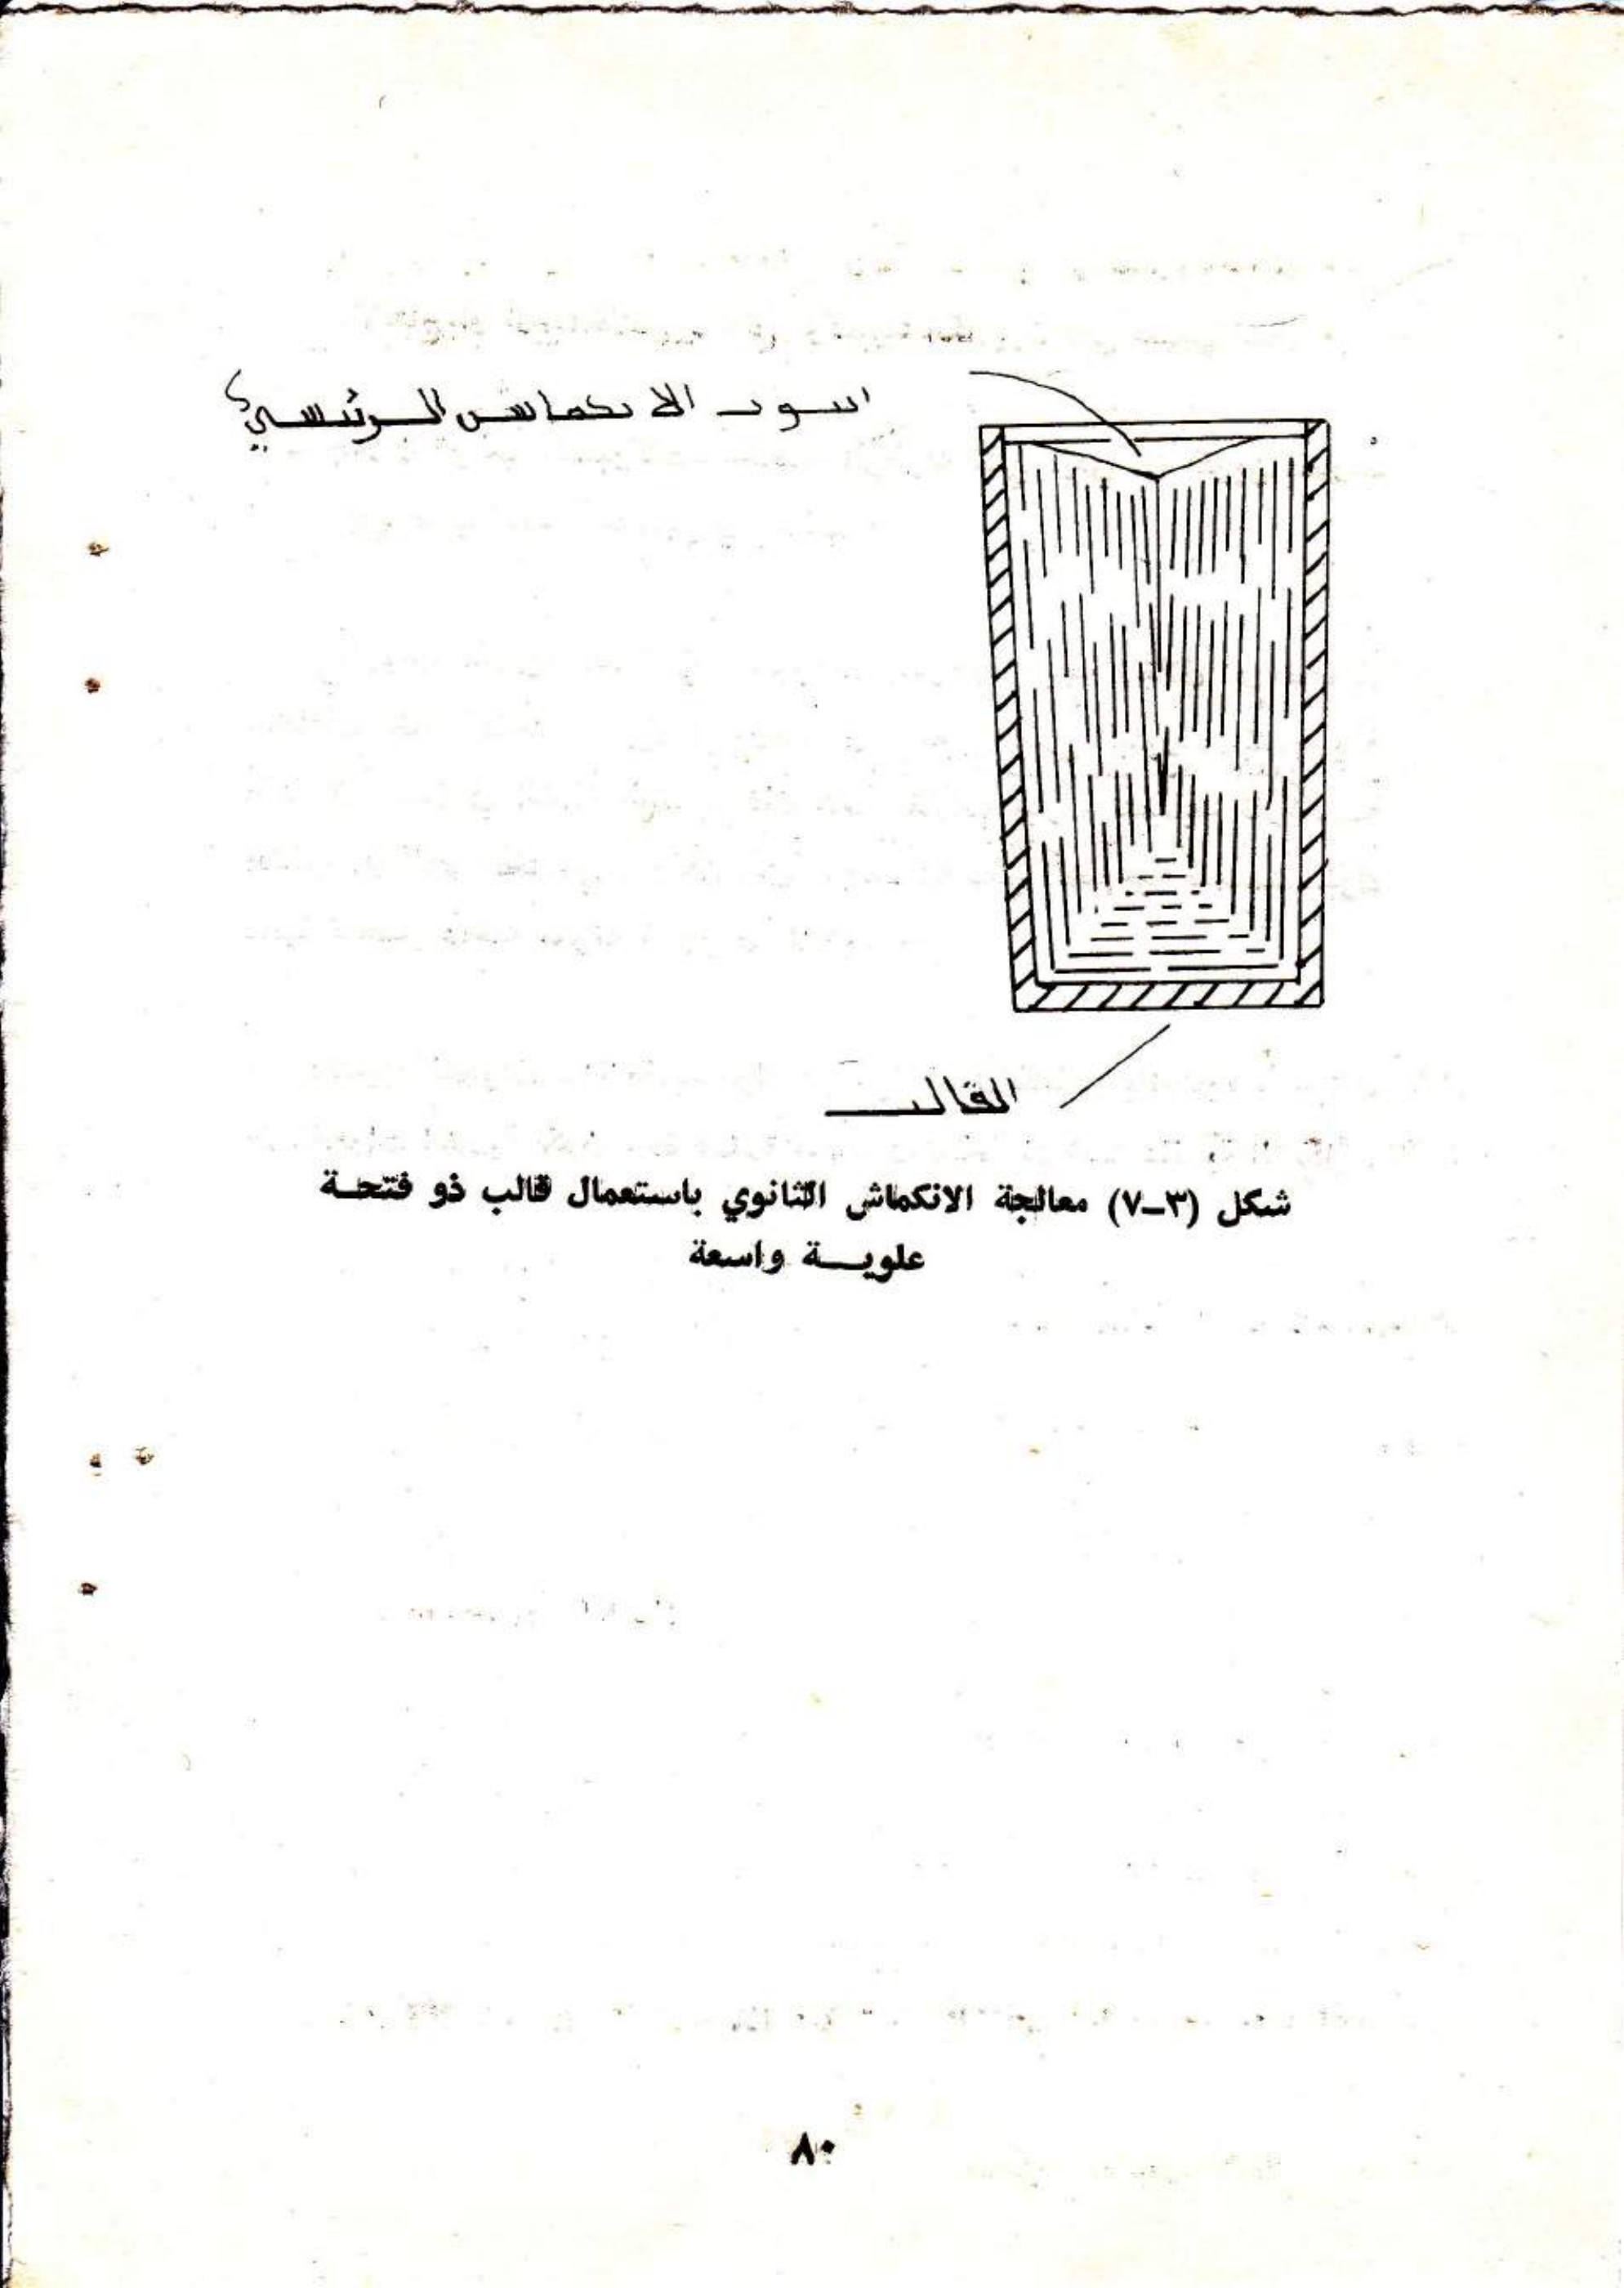 انبوب الانكماش الرئيسي
القالب
شكل (٣-٧) معالجة الانكماش الثانوي باستعمال قالب ذو فتحة
علويـــة واسعة
٨٠